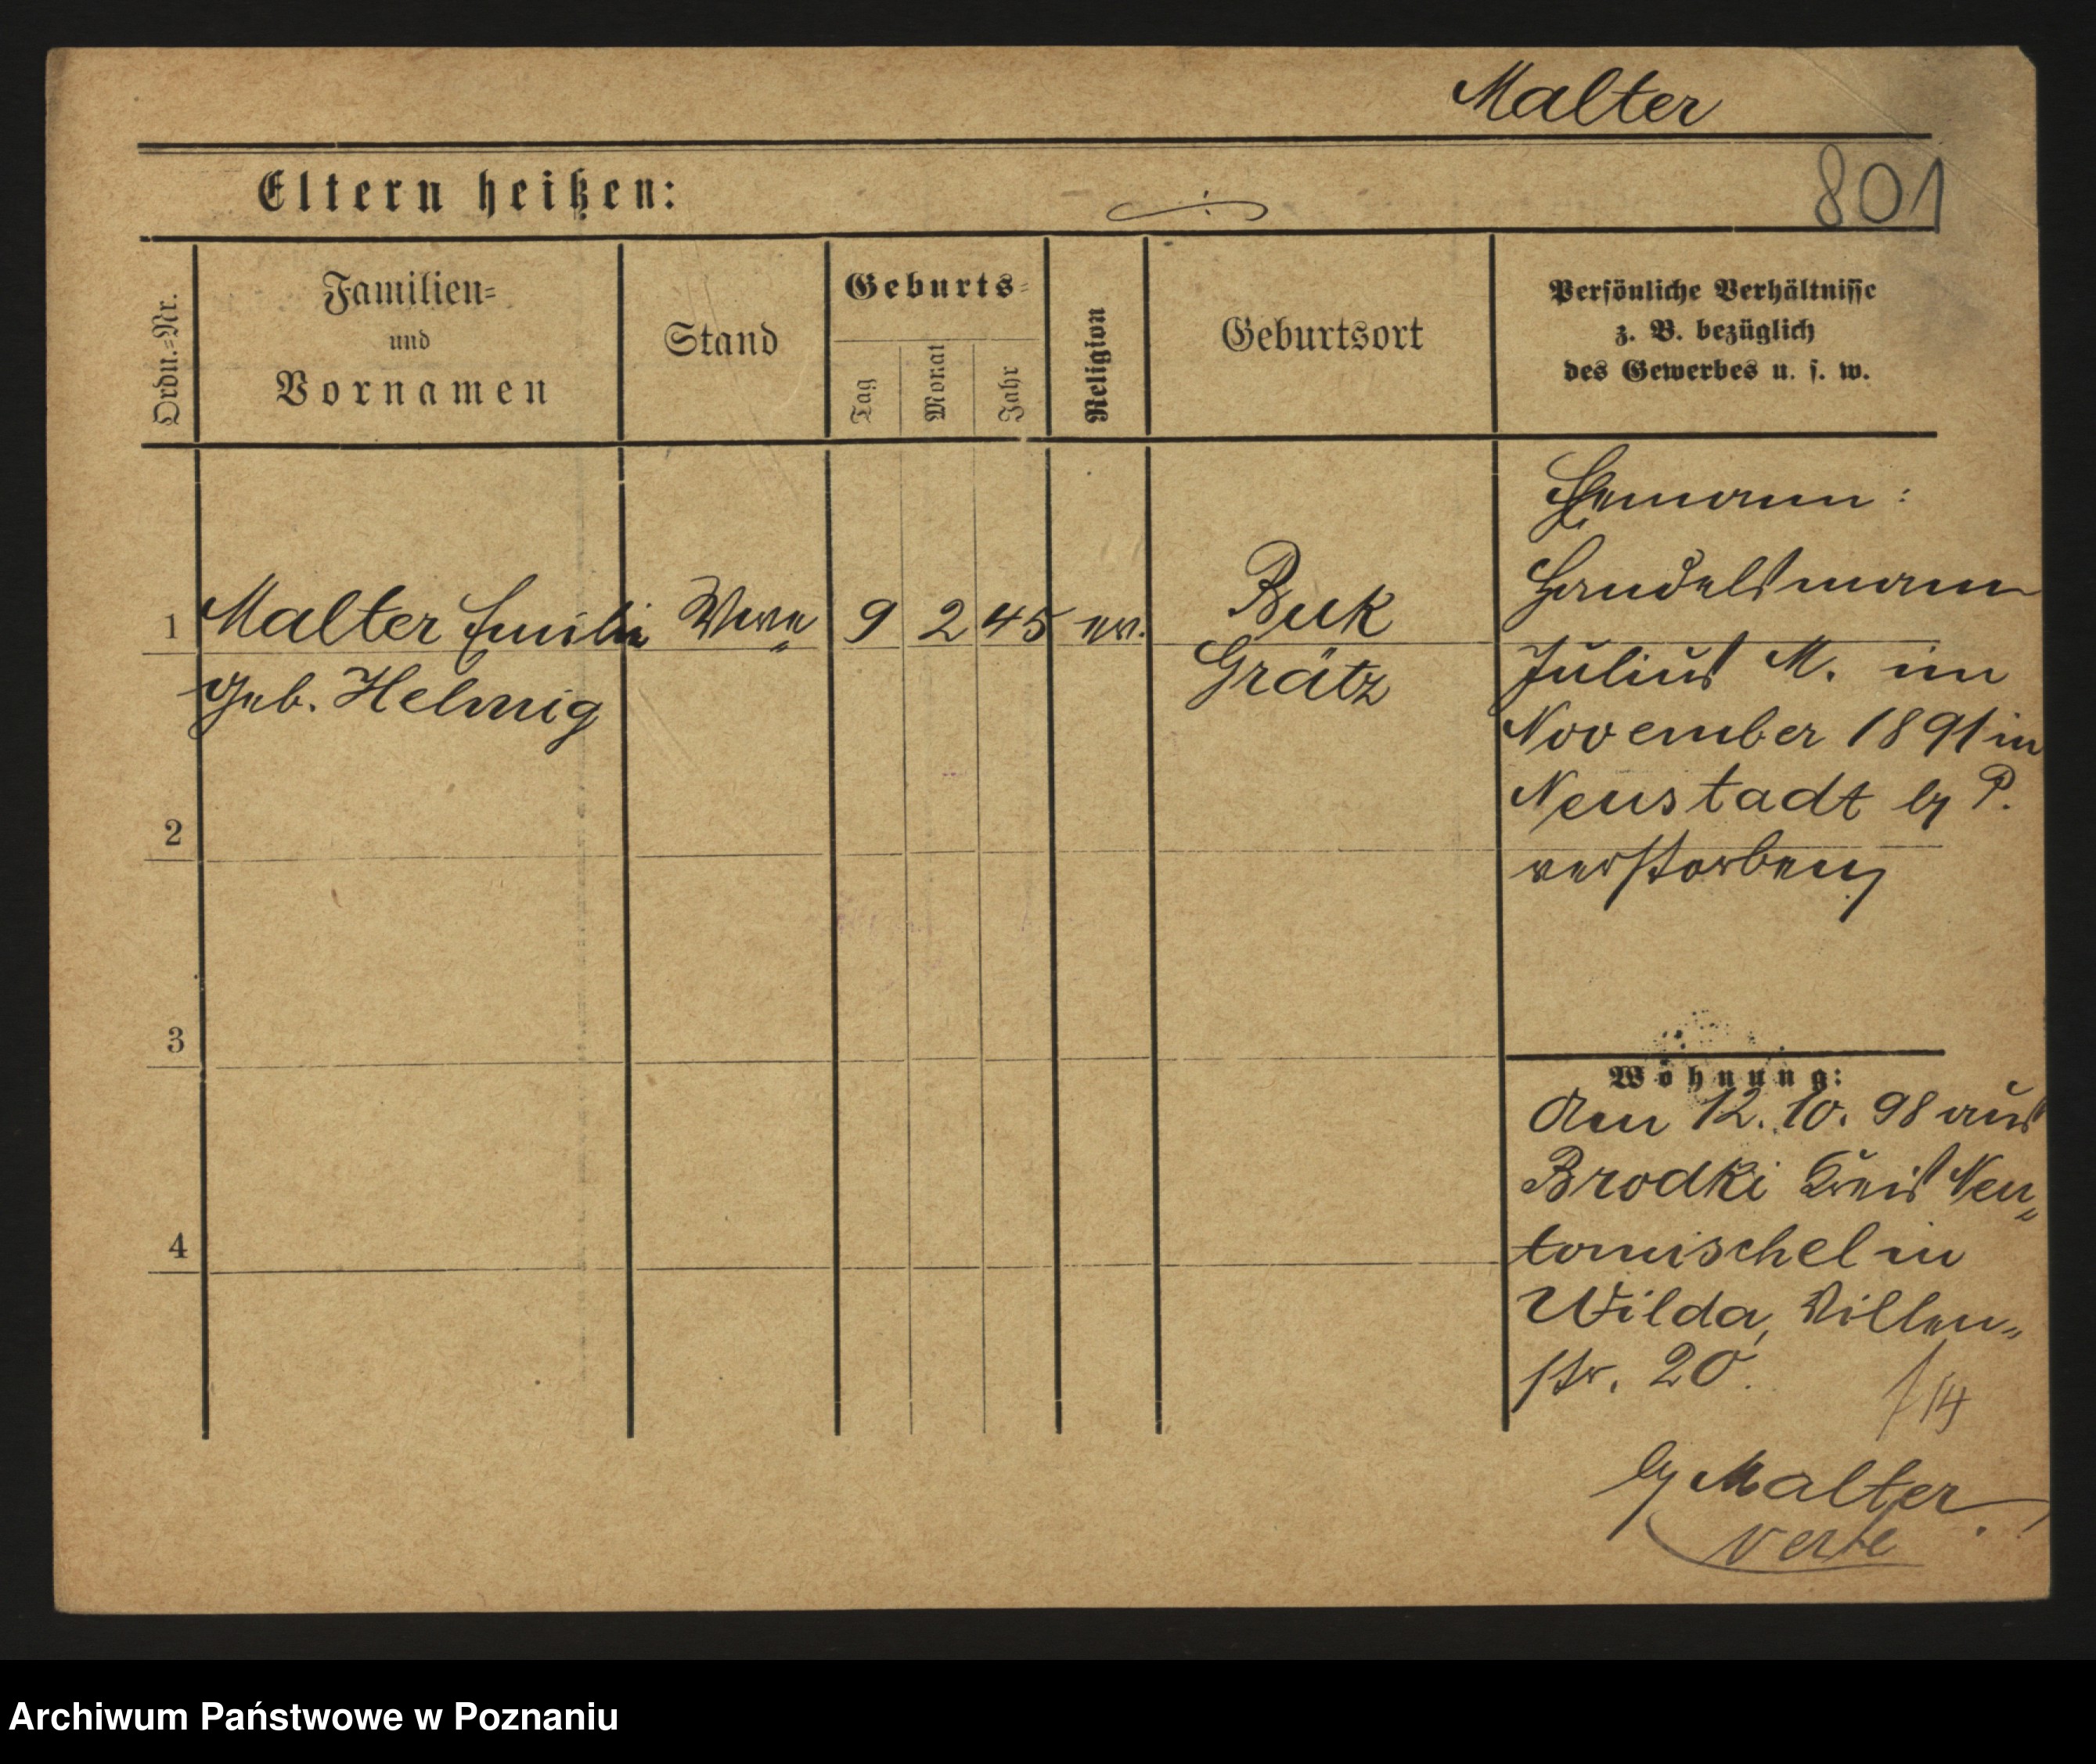 Malter
801
Eltern heißen:
Ordn.-Nr.
Familien-
und
Vornamen
Stand
Geburts-
Tag
Monat
Jahr
Religion
Geburtsort
Persönliche Verhältnisse
z. B. bezüglich
des Gewerbes u. s. w.
1 Malter Emilie Wwe 9 2 45 ev. Buk
geb. Helmig Grätz
Ehemann:
Handelsmann
Julius M. im
November 1891 in
Neustadt b/ P.
verstorben
2
3
4
Wohnung:
Am 12. 10. 98 aus
Brodki Kreis Neu„
tomischel in
Wilda, Villen„
str. 20.
14
b/ Malter.
verte
Archiwum Państwowe w Poznaniu